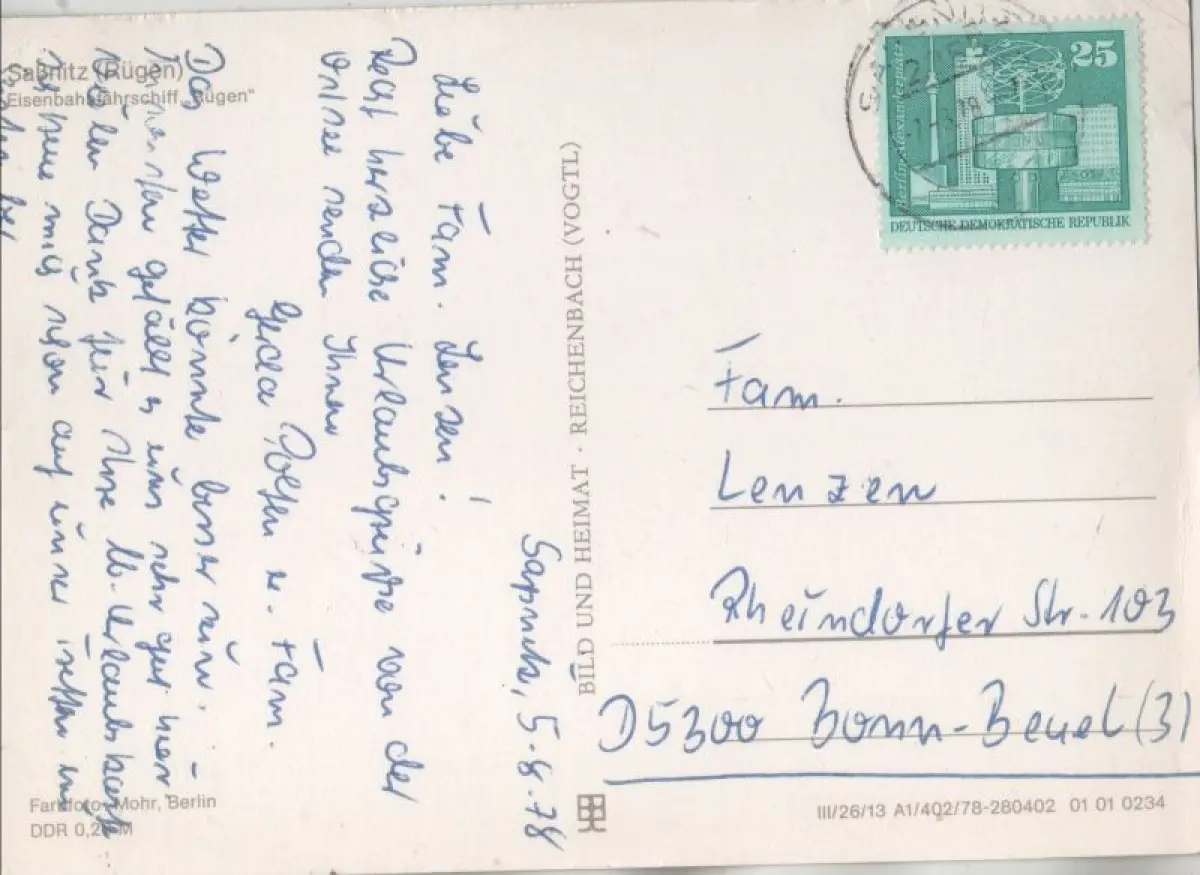 Saßnitz (Rügen)
Eisenbahnfährschiff „Rügen"
Saßnitz, 5.8.78
Liebe Fam. Lenzen!
Recht herzliche Urlaubsgrüße von der
Ostsee senden Ihnen
Gerda u. Fam.
Das Wetter könnte besser sein.
gefällt es uns sehr gut hier
Vielen Dank für Ihre lb. Urlaubskarte
Ich freue mich schon auf
BILD UND HEIMAT · REICHENBACH (VOGTL)
25
Berlin-Alexanderplatz
DEUTSCHE DEMOKRATISCHE REPUBLIK
Fam.
Lenzen
Rheindorfer Str. 103
D5300 Bonn-Beuel (3)
Farbfoto: Mohr, Berlin
DDR 0,20 M
III/26/13 A1/402/78-280402 01 01 0234